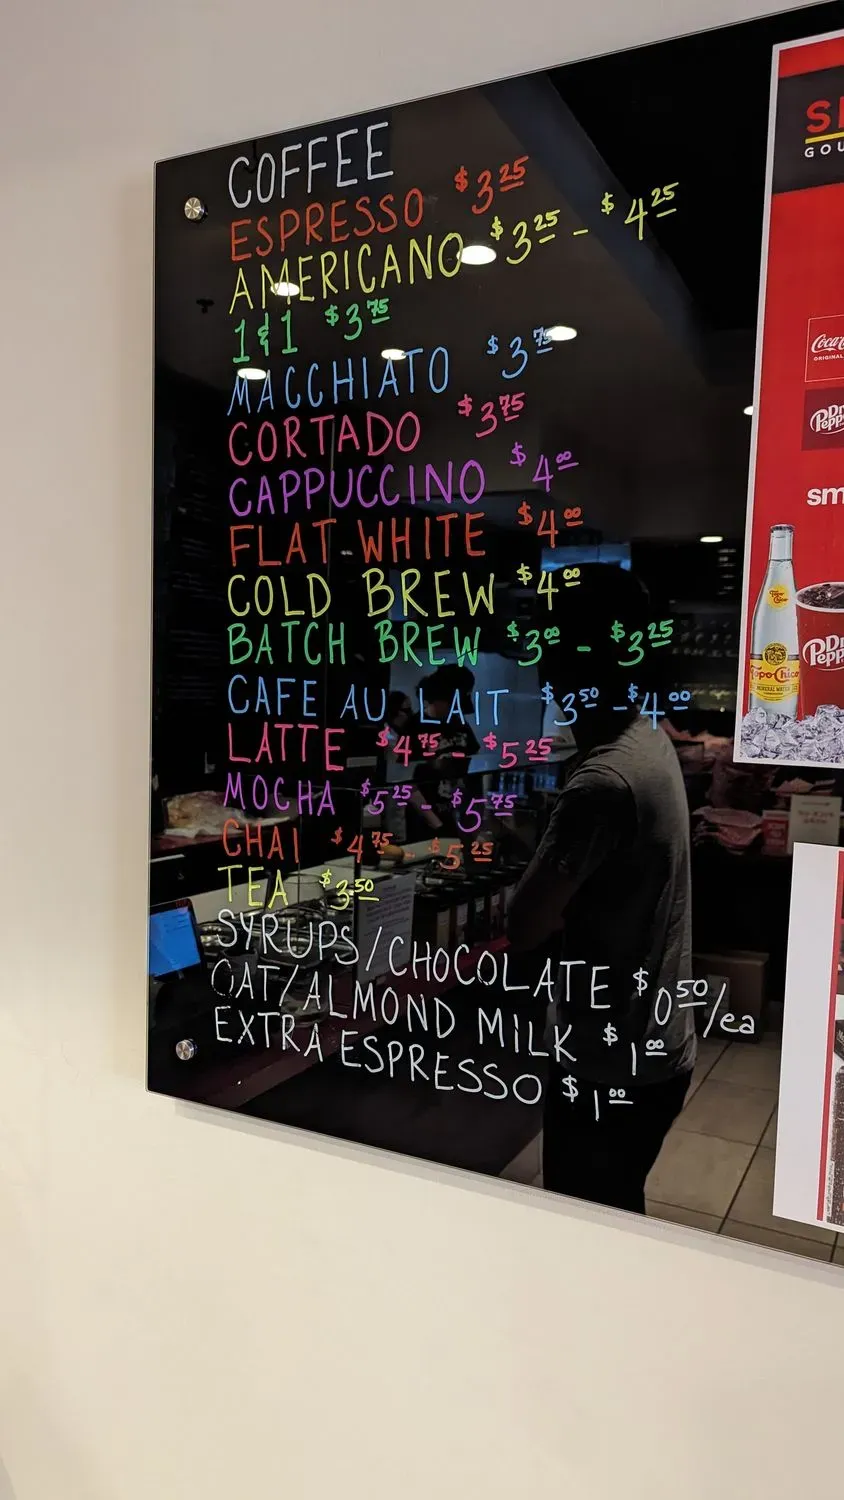 COFFEE
ESPRESSO $3.25
AMERICANO $3.25 - $4.25
1 & 1 $3.75
MACCHIATO $3.75
CORTADO $3.75
CAPPUCCINO $4.00
FLAT WHITE $4.00
COLD BREW $4.00
BATCH BREW $3.00 - $3.25
CAFE AU LAIT $3.50 - $4.00
LATTE $4.75 - $5.25
MOCHA $5.25 - $5.75
CHAI $4.75 - $5.25
TEA $3.50
SYRUPS/CHOCOLATE $0.50/ea
OAT/ALMOND MILK $1.00
EXTRA ESPRESSO $1.00
ORIGINAL
Topo Chico
MINERAL WATER